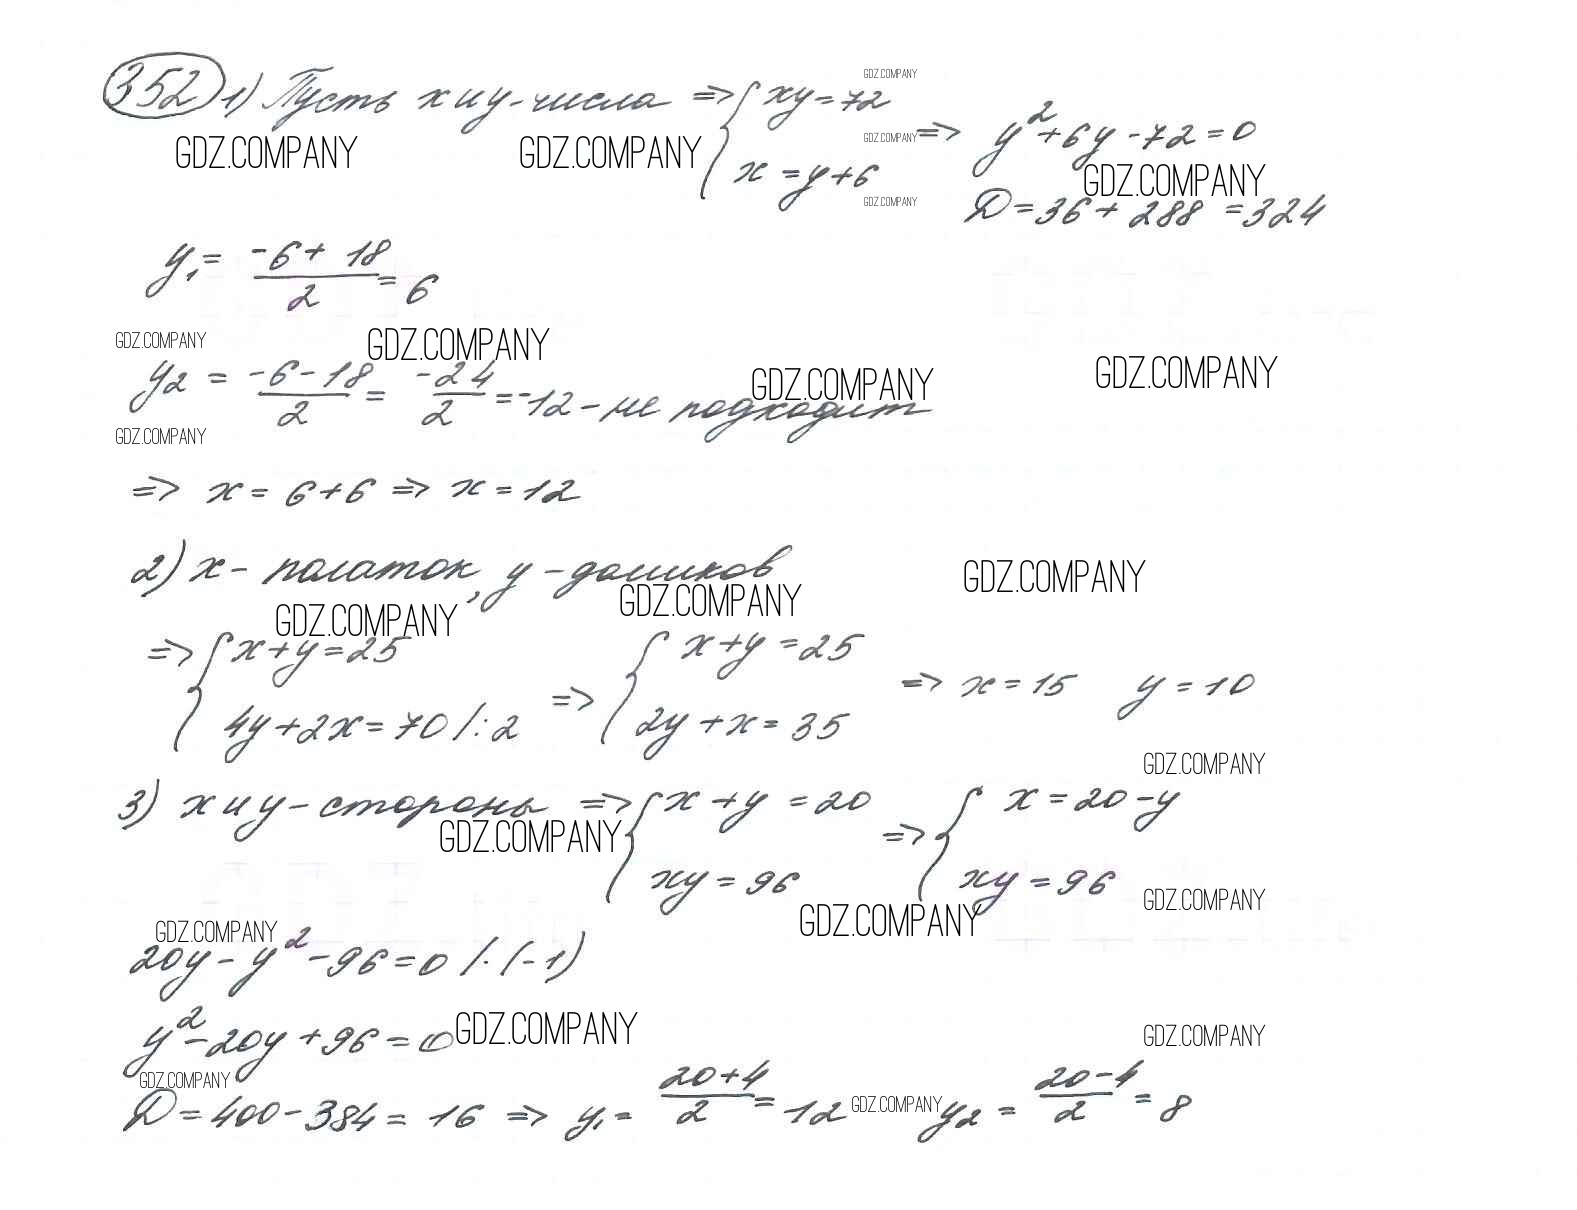 352 1) Пусть x и y - числа => { xy = 72
GDZ.COMPANY
x = y + 6
GDZ.COMPANY
=> y² + 6y - 72 = 0
GDZ.COMPANY GDZ.COMPANY GDZ.COMPANY
GDZ.COMPANY
D = 36 + 288 = 324
y₁ = (-6 + 18)/2 = 6
GDZ.COMPANY GDZ.COMPANY GDZ.COMPANY GDZ.COMPANY
y₂ = (-6 - 18)/2 = -24/2 = -12 - не подходит
GDZ.COMPANY
=> x = 6 + 6 => x = 12
2) x - палаток, y - домиков
GDZ.COMPANY GDZ.COMPANY GDZ.COMPANY
=> { x + y = 25
4y + 2x = 70 /: 2
=> { x + y = 25
2y + x = 35
=> x = 15 y = 10
GDZ.COMPANY
3) x и y - стороны => { x + y = 20
xy = 96
=> { x = 20 - y
xy = 96
GDZ.COMPANY GDZ.COMPANY GDZ.COMPANY
GDZ.COMPANY
20y - y² - 96 = 0 /· (-1)
y² - 20y + 96 = 0
GDZ.COMPANY GDZ.COMPANY
GDZ.COMPANY
D = 400 - 384 = 16 => y₁ = (20 + 4)/2 = 12 GDZ.COMPANY y₂ = (20 - 4)/2 = 8